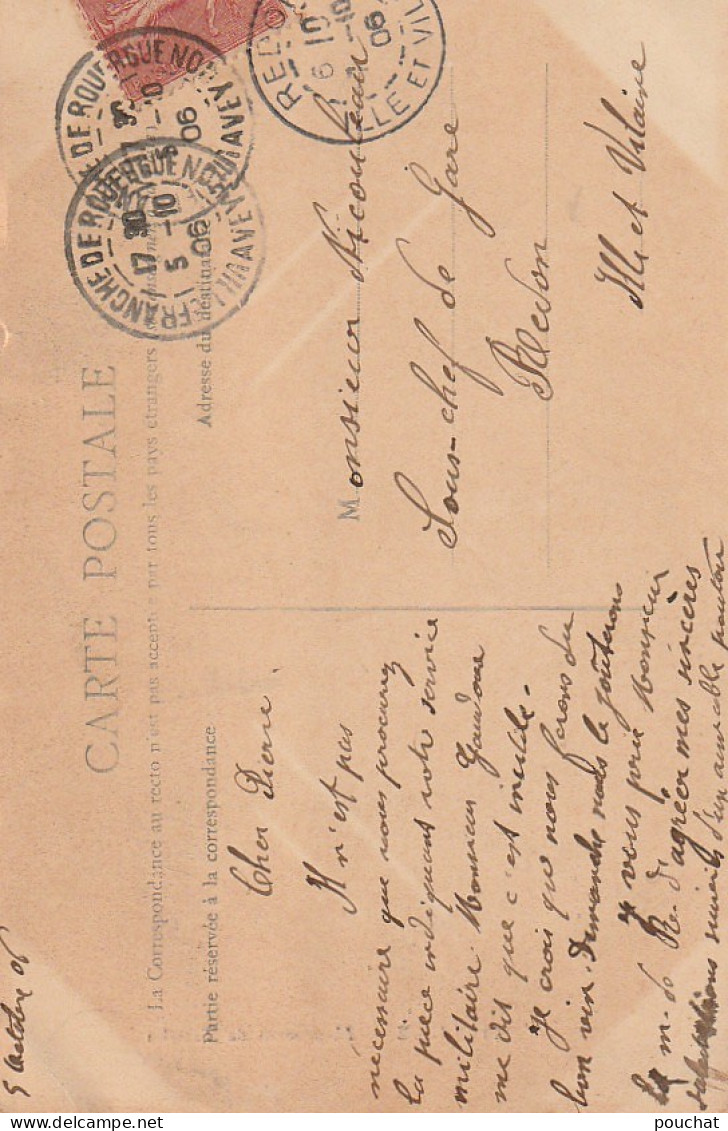 5 Octobre 06
CARTE POSTALE
La Correspondance au recto n'est pas acceptée par tous les pays étrangers
Partie réservée à la correspondance
Adresse du destinataire
Cher Pierre
Il n'est pas
nécessaire que vous procuriez
la pièce indiquant votre service
militaire. Monsieur
me dit que c'est inutile.
Je crois que nous ferons du
bon vin. Dimanche nous le goûterons
Je vous prie Monsieur
d'agréer mes sincères
salutations
Monsieur Nicouleau
Sous-chef de Gare
Redon
Ille et Vilaine
VILLEFRANCHE DE ROUERGUE AVEYRON
17 30
5 -10
06
VILLEFRANCHE DE ROUERGUE AVEYRON
-10
06
REDON
ILLE ET VILAINE
6 -10
06
pouchat